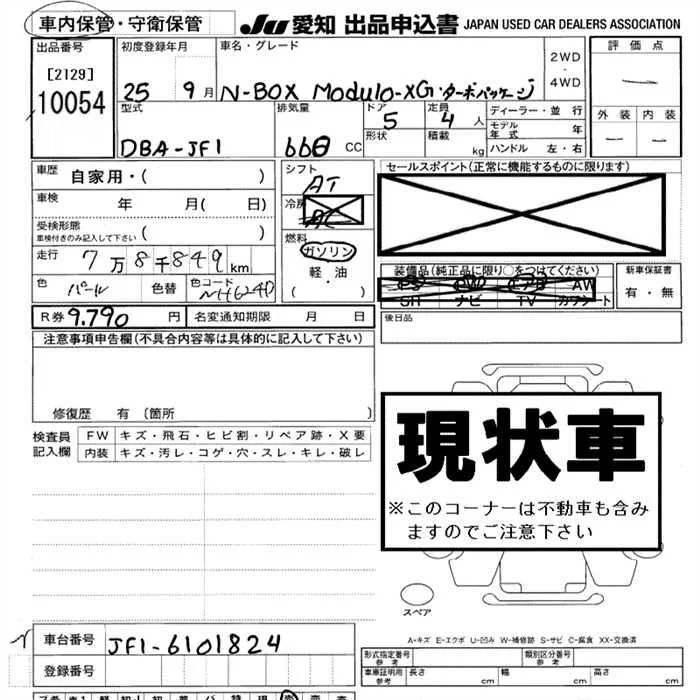 車内保管・守衛保管
JU 愛知 出品申込書 JAPAN USED CAR DEALERS ASSOCIATION
出品番号
[2129]
10054
初度登録年月
25 9 月
車名・グレード
N-BOX Modulo-XG・ターボパッケージ
2WD
・
4WD
評価点
外装 内装
型式
DBA-JF1
排気量
660 CC
ドア
5
形状
定員
4 人
積載 kg
ディーラー・並行
モデル年式 年
ハンドル 左・右
車歴
自家用・( )
車検 年 月( 日)
受検形態
車検付きのみ記入して下さい ( )
走行 7万8千849 km
色 パール 色替 色コード NH624P
シフト
AT
冷房
AC
燃料
ガソリン
軽・油
( )
セールスポイント(正常に機能するものに限ります)
装備品(純正品に限り○をつけてください)
PS PW エアB AW
SR ナビ TV カワシート
新車保証書
有・無
R券 9.790 円 名変通知期限 月 日
後日品
注意事項申告欄(不具合内容等は具体的に記入して下さい)
修復歴 有 (箇所 )
検査員
記入欄
FW キズ・飛石・ヒビ割・リペア跡・X要
内装 キズ・汚レ・コゲ・穴・スレ・キレ・破レ
現状車
※このコーナーは不動車も含み
ますのでご注意下さい
スペア
A-キズ E-エクボ U-凹み W-補修跡 S-サビ C-腐食 XX-交換済
車台番号 JF1-6101824
登録番号
型式指定番号
参考
類別区分番号
参考
車庫証明用
参考
長さ cm 幅 cm 高さ cm